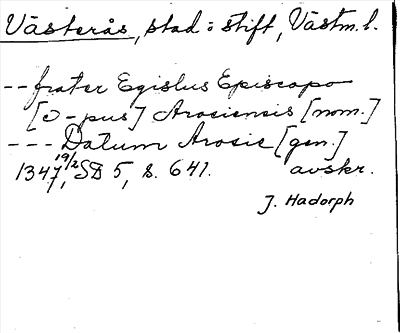 Västerås, stad o stift, Västm.l.
-- frater Egislus Episcopo
[ɔ - pus] Arosiensis [nom.]
--- Datum Arosie [gen.]
1347 19/2, SD 5, s. 641. avskr.
J. Hadorph